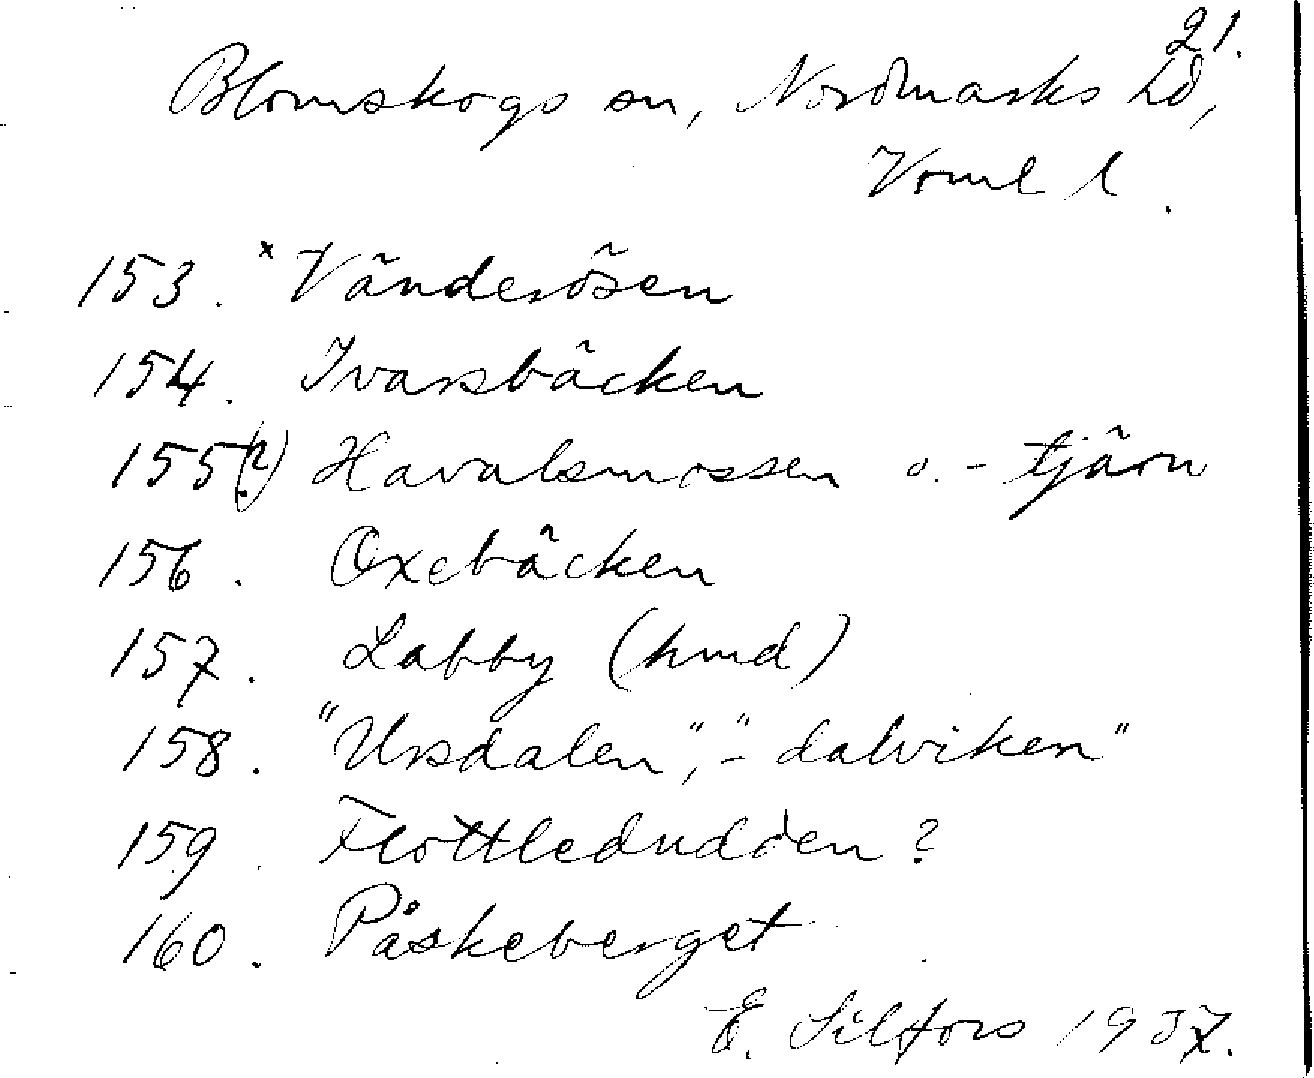 21.
Blomskogs sn, Nordmarks hd,
Vrml l.
153. ˣ Vänderösen
154. Ivarsbäcken
155(?) Havalsmossen o. - tjärn
156. Oxebäcken
157. Labby (hmd)
158. "Ursdalen", "- dalviken"
159. Flottledudden?
160. Påskeberget
E. Silfors 1937.